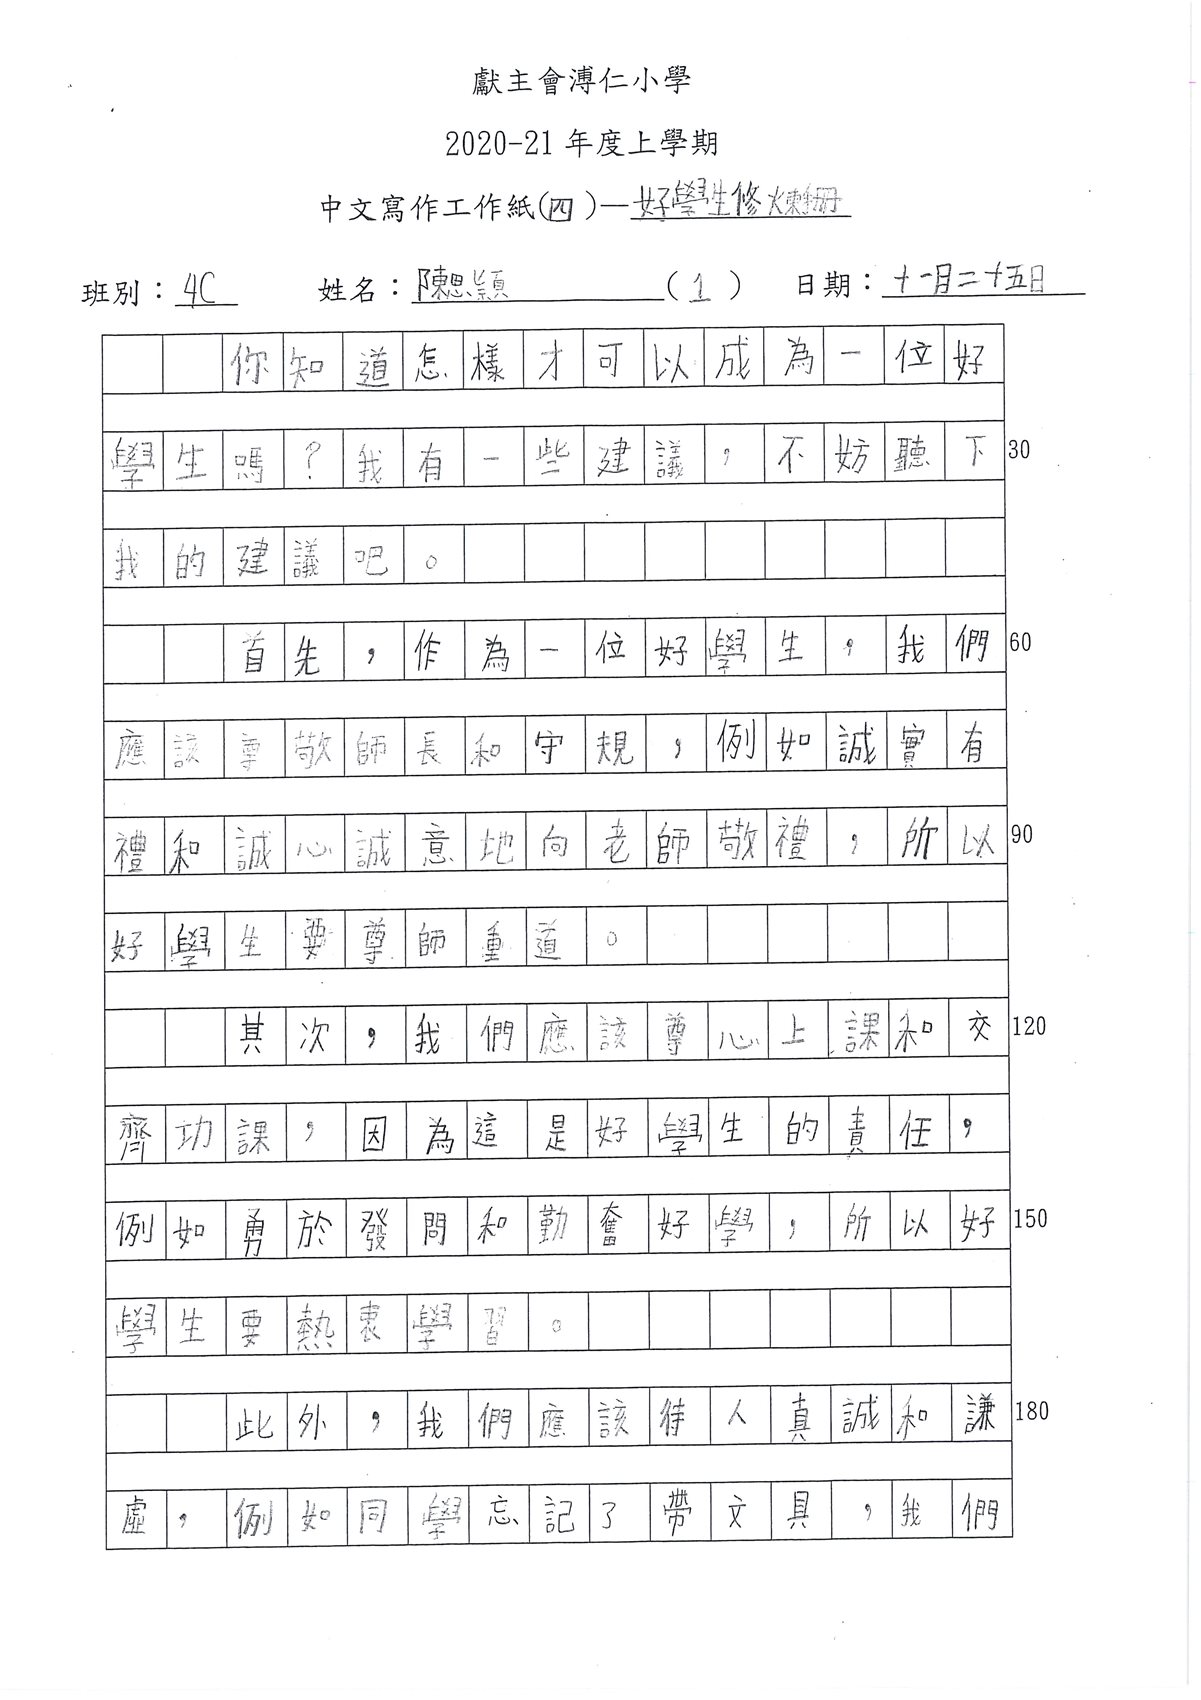 獻主會溥仁小學
2020-21 年度上學期
中文寫作工作紙(四)—好學生修煉冊
班別：4C 姓名：陳思穎 (1) 日期：十一月二十五日
你知道怎樣才可以成為一位好
學生嗎？我有一些建議，不妨聽下 30
我的建議吧。
首先，作為一位好學生，我們 60
應該尊敬師長和守規，例如誠實有
禮和誠心誠意地向老師敬禮，所以 90
好學生要尊師重道。
其次，我們應該尊心上課和交 120
齊功課，因為這是好學生的責任，
例如勇於發問和勤奮好學，所以好 150
學生要熱衷學習。
此外，我們應該待人真誠和謙 180
虛，例如同學忘記了帶文具，我們